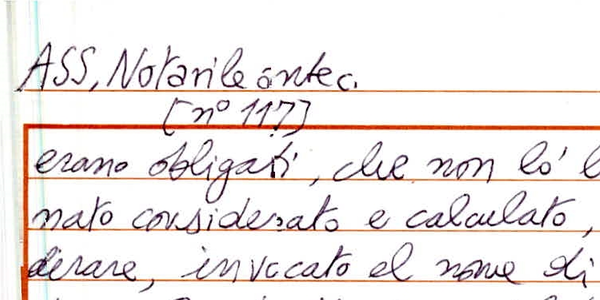 ASS, Notarile antec.
[nº 117]
erano obligati, che non lo'
nato considerato e calculato,
derare, invocato el nome di